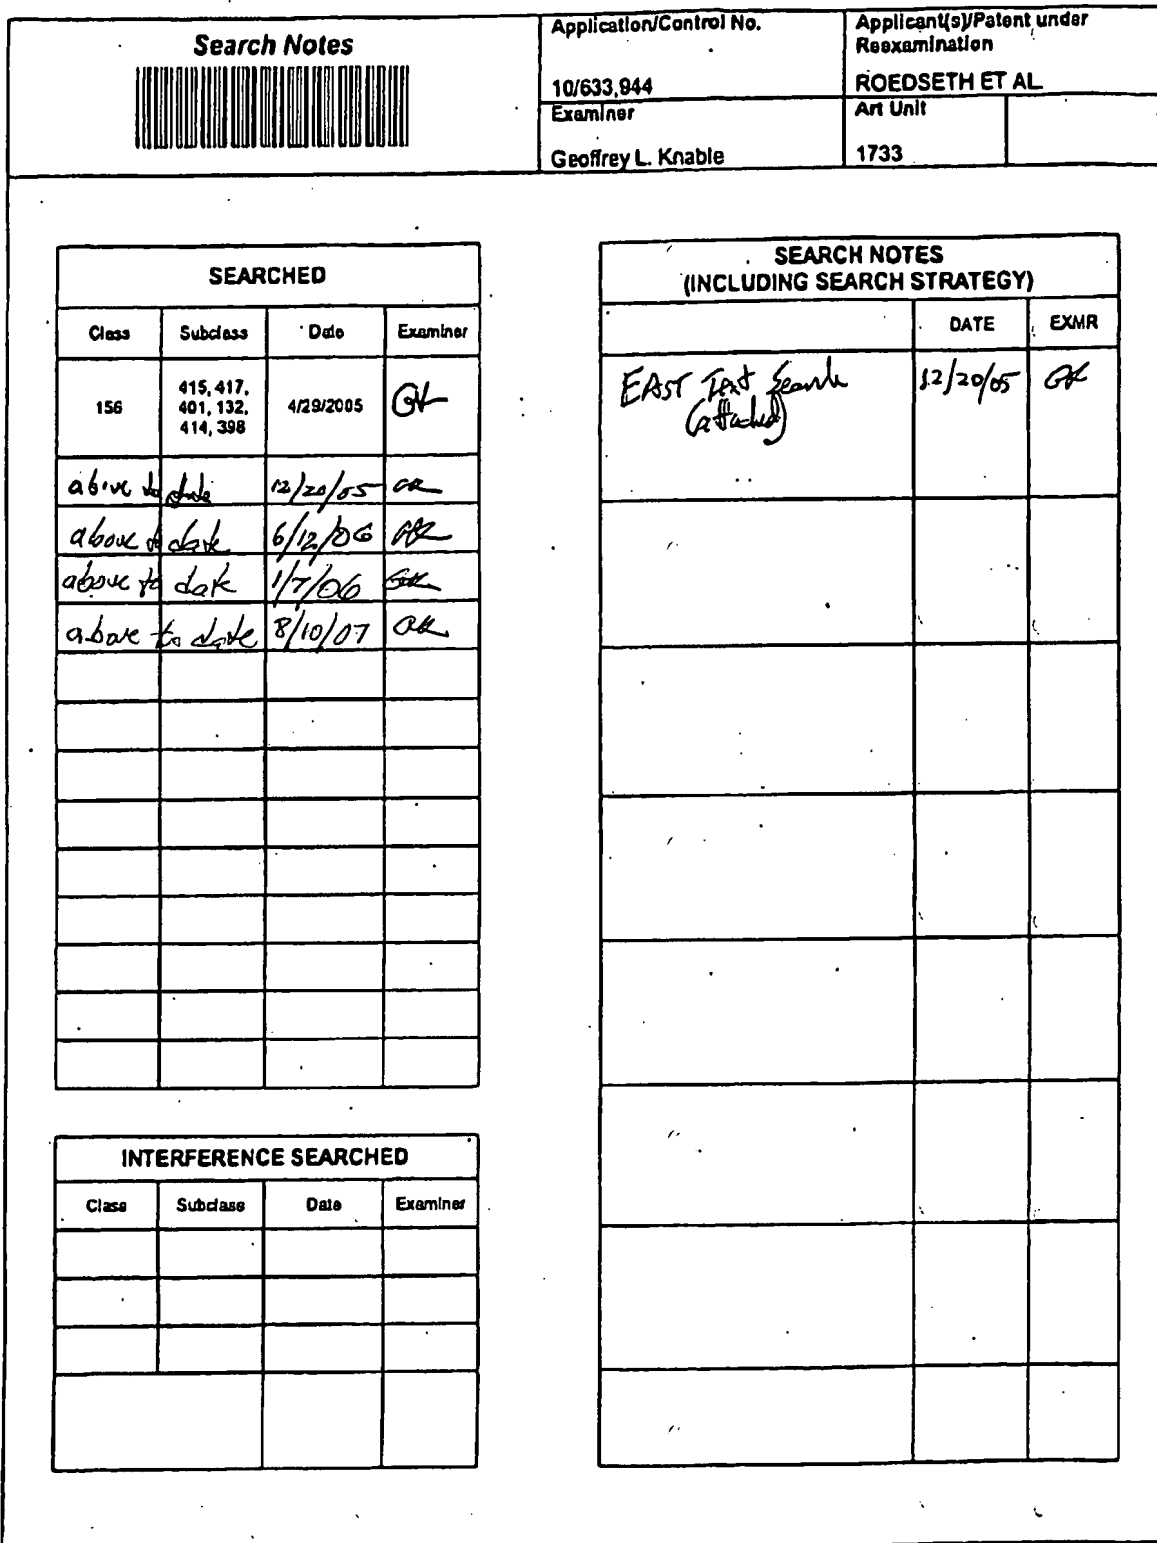 Search Notes
Application/Control No.
10/633,944
Applicant(s)/Patent under
Reexamination
ROEDSETH ET AL.
Examiner
Geoffrey L. Knable
Art Unit
1733
SEARCHED
Class Subclass Date Examiner
156 415, 417, 401, 132, 414, 398 4/29/2005 GK
above to date 12/20/05 GK
above to date 6/12/06 GK
above to date 1/7/06 GK
above to date 8/10/07 GK
INTERFERENCE SEARCHED
Class Subclass Date Examiner
SEARCH NOTES
(INCLUDING SEARCH STRATEGY)
DATE EXMR
EAST Text Search 12/20/05 GK
(attached)